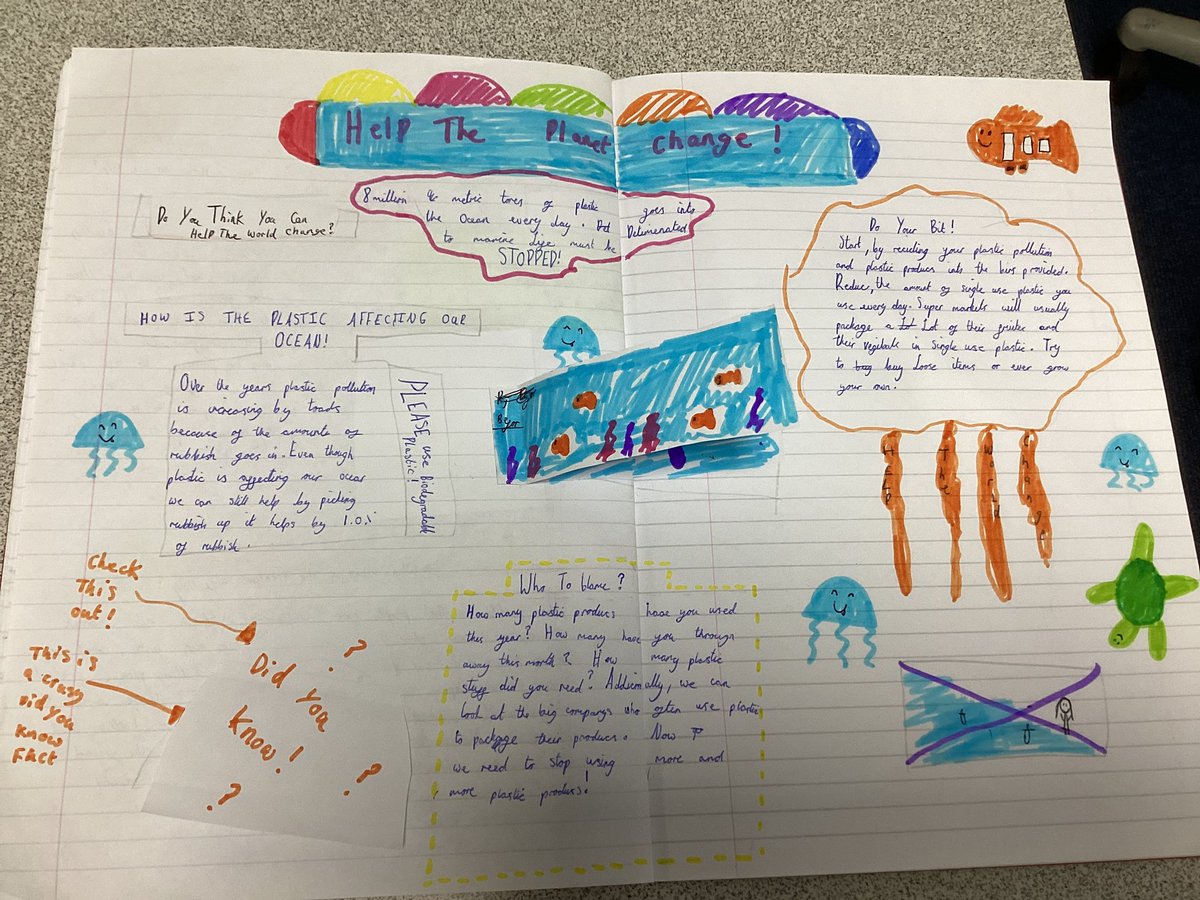 Help The Planet change!
8 million metric tones of plastic goes into
the Ocean every day. Deterimenated
to marine life must be
STOPPED!
Do You Think You Can
Help The world change?
HOW IS THE PLASTIC AFFECTING OUR
OCEAN!
Over the years plastic pollution
is increasing by toads
because of the amounts of
rubbish goes in. Even though
plastic is affecting our ocean
we can still help by picking
rubbish up it helps by 1.0%
of rubbish.
PLEASE use Biodegradable
Plastic!
Do Your Bit!
Start, by recycling your plastic pollution
and plastic producs into the bins provided.
Reduce, the amount of single use plastic you
use every day. Super markets will usually
package a Lot of their fruite and
their vegibals in single use plastic. Try
to buy loose items or even grow
your own.
Help
The
World
Change
Check
This
out!
This is
a crazy
did you
know
Fact
Did you
know!
? ? ?
Who To blame?
How many plastic producs have you used
this year? How many have you through
away this month? How many plastic
stuff did you need? Addicinally, we can
look at the big companys who often use plastic
to package their producs. Now
we need to stop using more and
more plastic producs!